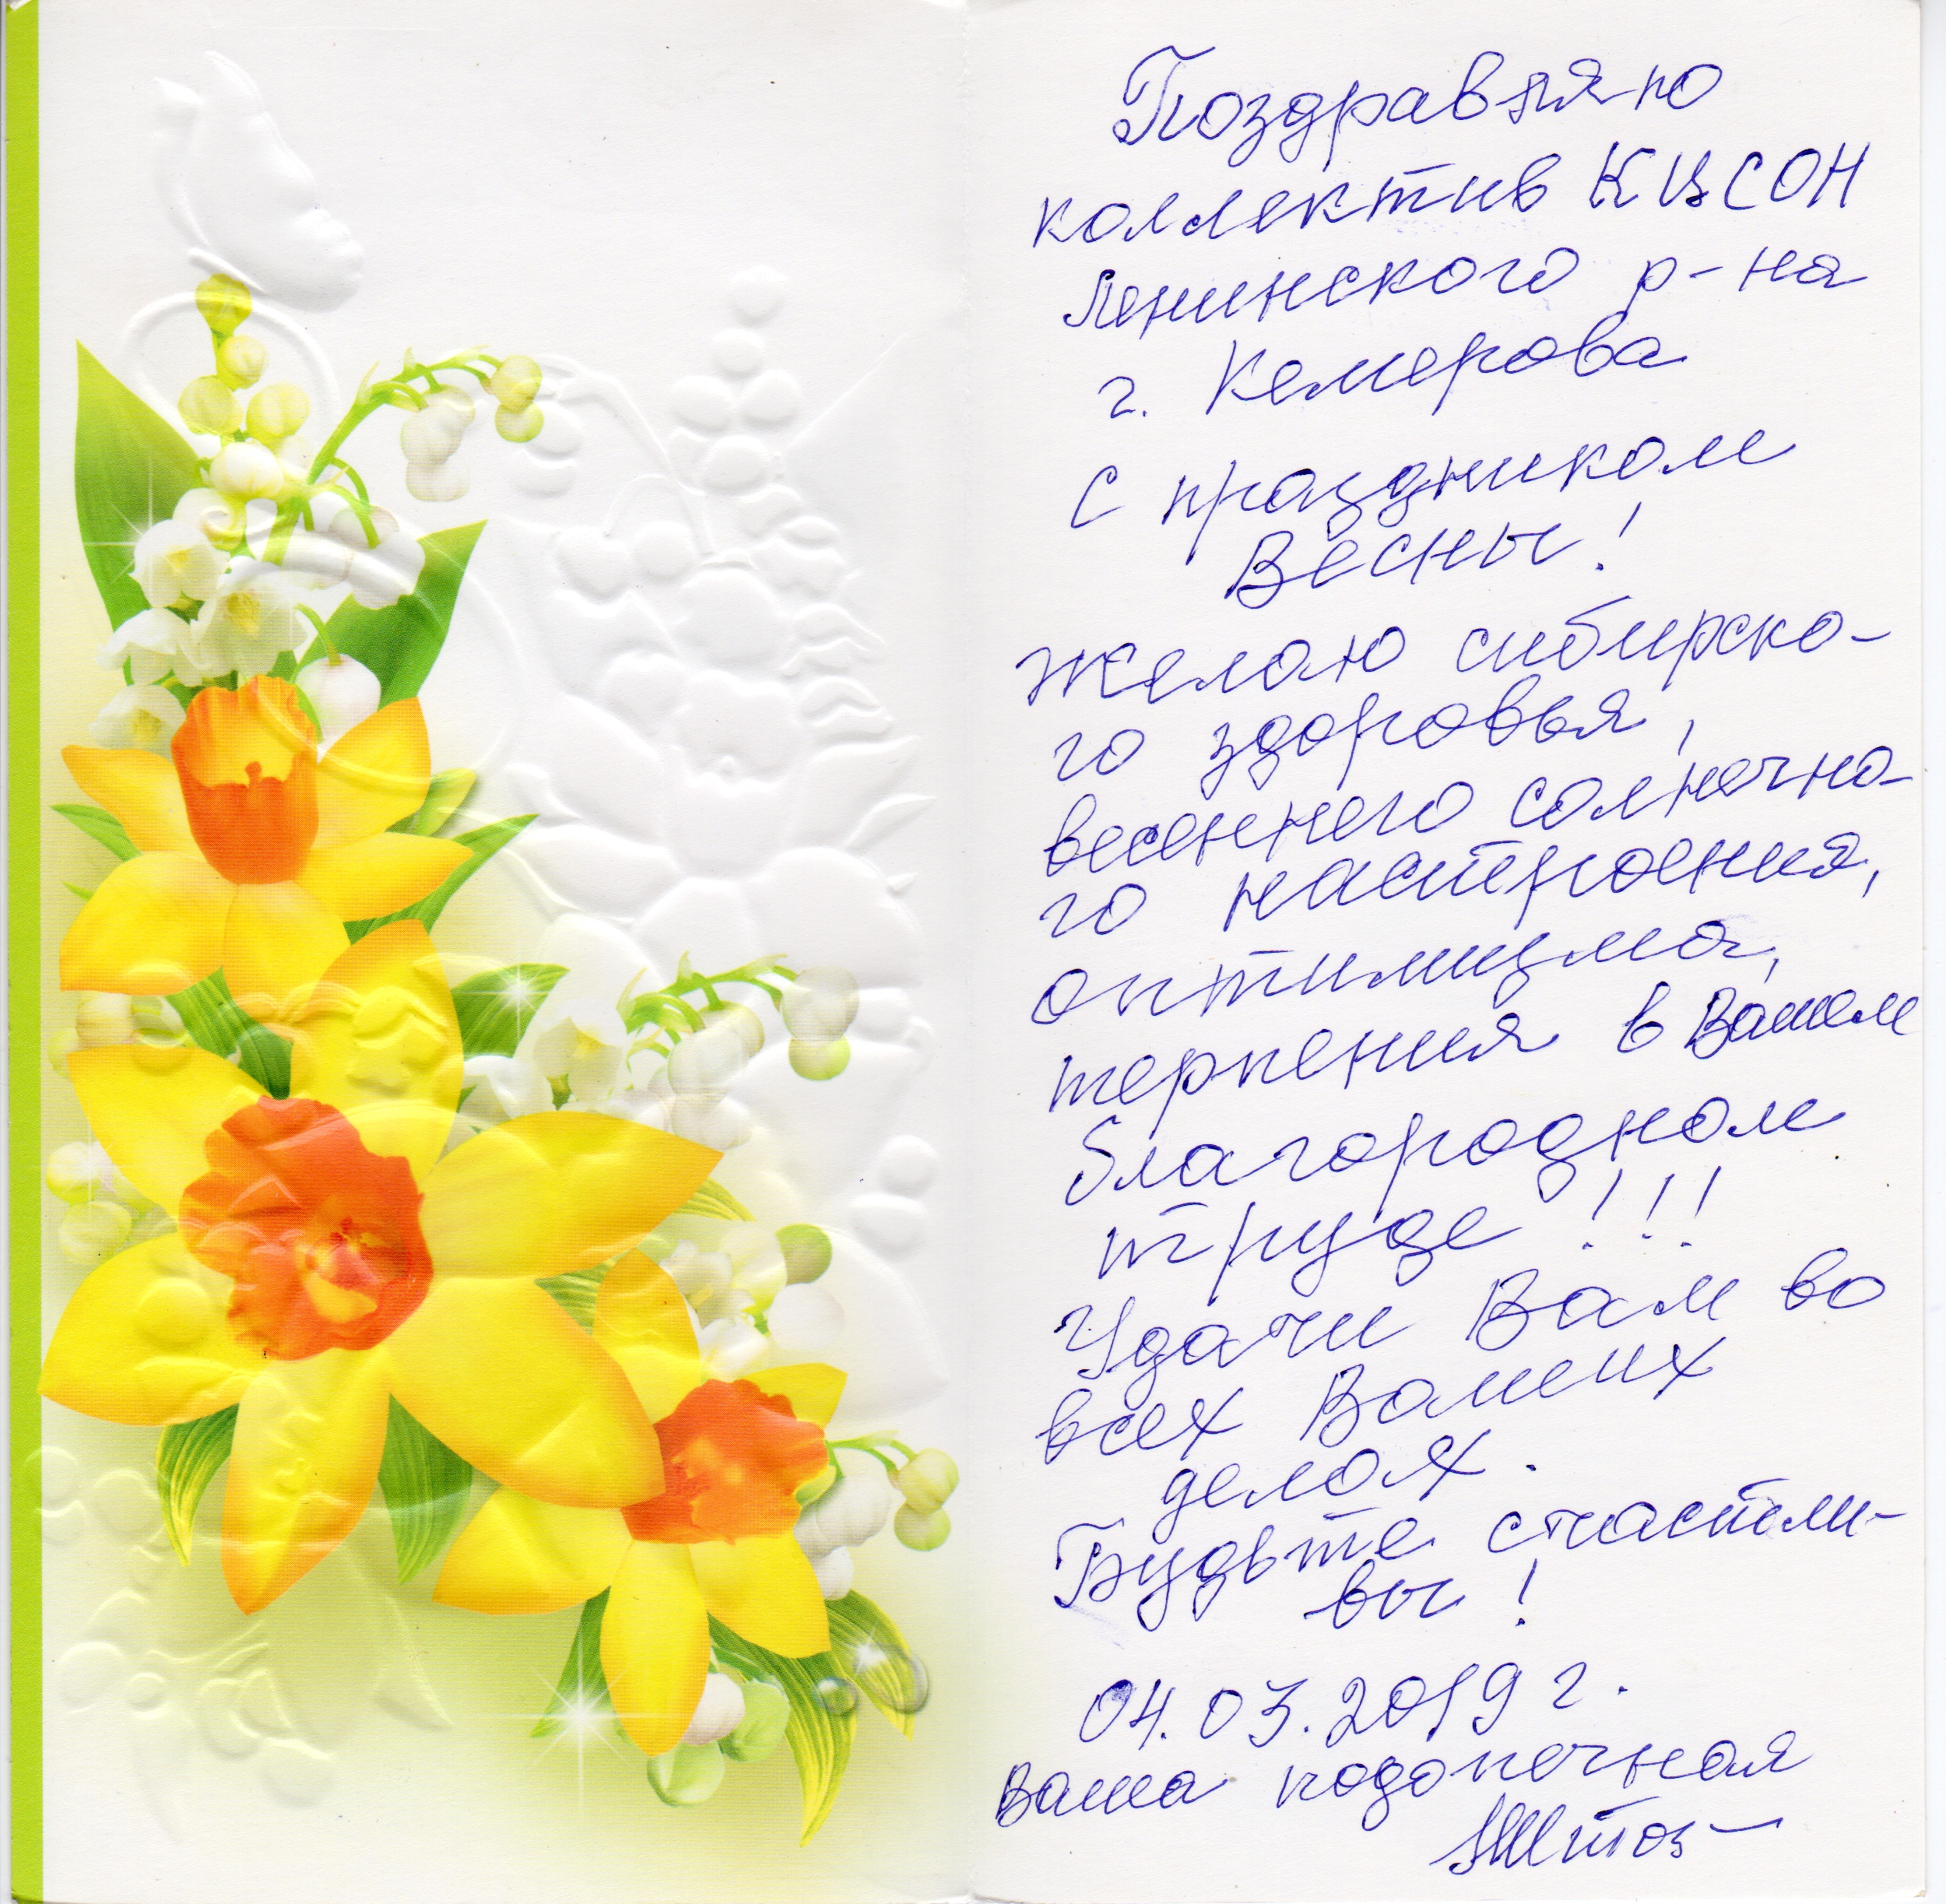 Поздравляю
коллектив КЦСОН
Ленинского р-на
г. Кемерова
с праздником
Весны!
Желаю сибирско-
го здоровья,
весеннего солнечно-
го настроения,
оптимизма,
терпения в Вашем
благородном
труде!!!
Удачи Вам во
всех Ваших
делах.
Будьте счастли-
вы!
04.03.2019 г.
Ваша подопечная